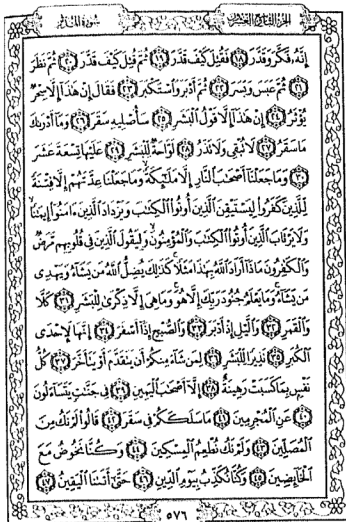 الجزء التاسع والعشرون سورة المدثر
إِنَّهُ فَكَّرَ وَقَدَّرَ ١٨ فَقُتِلَ كَيْفَ قَدَّرَ ١٩ ثُمَّ قُتِلَ كَيْفَ قَدَّرَ ٢٠ ثُمَّ نَظَرَ
٢١ ثُمَّ عَبَسَ وَبَسَرَ ٢٢ ثُمَّ أَدْبَرَ وَاسْتَكْبَرَ ٢٣ فَقَالَ إِنْ هَذَا إِلَّا سِحْرٌ
يُؤْثَرُ ٢٤ إِنْ هَذَا إِلَّا قَوْلُ الْبَشَرِ ٢٥ سَأُصْلِيهِ سَقَرَ ٢٦ وَمَا أَدْرَىكَ
مَا سَقَرُ ٢٧ لَا تُبْقِي وَلَا تَذَرُ ٢٨ لَوَّاحَةٌ لِلْبَشَرِ ٢٩ عَلَيْهَا تِسْعَةَ عَشَرَ
٣٠ وَمَا جَعَلْنَا أَصْحَبَ النَّارِ إِلَّا مَلَئِكَةً وَمَا جَعَلْنَا عِدَّتَهُمْ إِلَّا فِتْنَةً
لِلَّذِينَ كَفَرُوا لِيَسْتَيْقِنَ الَّذِينَ أُوتُوا الْكِتَبَ وَيَزْدَادَ الَّذِينَ ءَامَنُوا إِيمَنًا
وَلَا يَرْتَابَ الَّذِينَ أُوتُوا الْكِتَبَ وَالْمُؤْمِنُونَ وَلِيَقُولَ الَّذِينَ فِي قُلُوبِهِم مَّرَضٌ
وَالْكَفِرُونَ مَاذَا أَرَادَ اللَّهُ بِهَذَا مَثَلًا كَذَلِكَ يُضِلُّ اللَّهُ مَن يَشَاءُ وَيَهْدِي
مَن يَشَاءُ وَمَا يَعْلَمُ جُنُودَ رَبِّكَ إِلَّا هُوَ وَمَا هِيَ إِلَّا ذِكْرَى لِلْبَشَرِ ٣١ كَلَّا
وَالْقَمَرِ ٣٢ وَالَّيْلِ إِذْ أَدْبَرَ ٣٣ وَالصُّبْحِ إِذَا أَسْفَرَ ٣٤ إِنَّهَا لَإِحْدَى
الْكُبَرِ ٣٥ نَذِيرًا لِلْبَشَرِ ٣٦ لِمَن شَاءَ مِنكُمْ أَن يَتَقَدَّمَ أَوْ يَتَأَخَّرَ ٣٧ كُلُّ
نَفْسٍ بِمَا كَسَبَتْ رَهِينَةٌ ٣٨ إِلَّا أَصْحَبَ الْيَمِينِ ٣٩ فِي جَنَّتٍ يَتَسَاءَلُونَ
٤٠ عَنِ الْمُجْرِمِينَ ٤١ مَا سَلَكَكُمْ فِي سَقَرَ ٤٢ قَالُوا لَمْ نَكُ مِنَ
الْمُصَلِّينَ ٤٣ وَلَمْ نَكُ نُطْعِمُ الْمِسْكِينَ ٤٤ وَكُنَّا نَخُوضُ مَعَ
الْخَائِضِينَ ٤٥ وَكُنَّا نُكَذِّبُ بِيَوْمِ الدِّينِ ٤٦ حَتَّى أَتَىنَا الْيَقِينُ ٤٧
٥٧٦